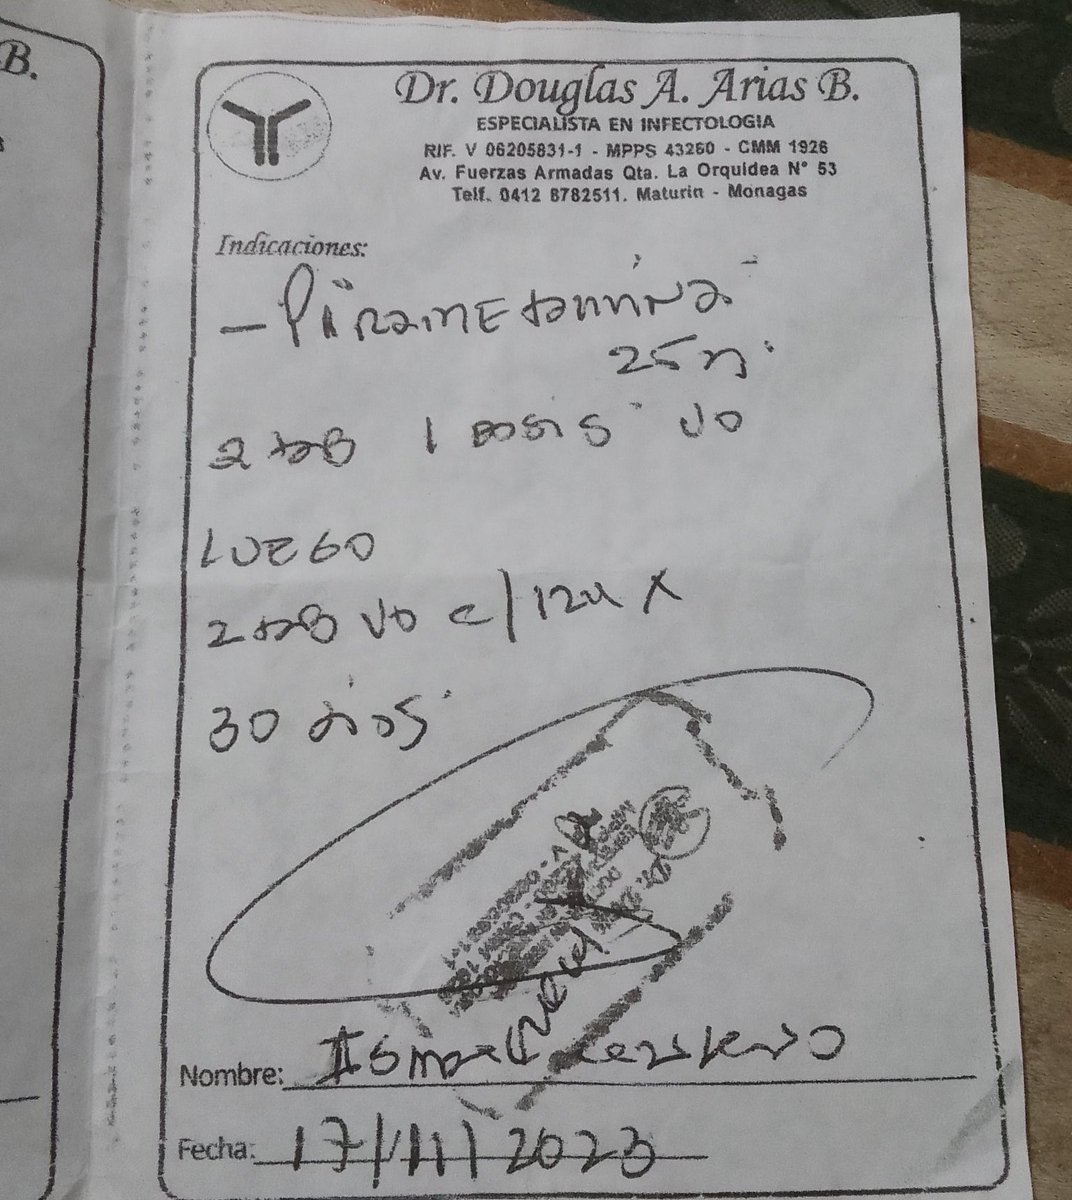 B.
Dr. Douglas A. Arias B.
ESPECIALISTA EN INFECTOLOGIA
RIF. V 06205831-1 - MPPS 43260 - CMM 1926
Av. Fuerzas Armadas Qta. La Orquidea N° 53
Telf. 0412 8782511. Maturin - Monagas
Indicaciones:
- Pirametamina
25m
2 tab 1 dosis vo
LUEGO
2 tab vo c/12h x
30 dias
Nombre: Ismael
Fecha: 17/11/2023